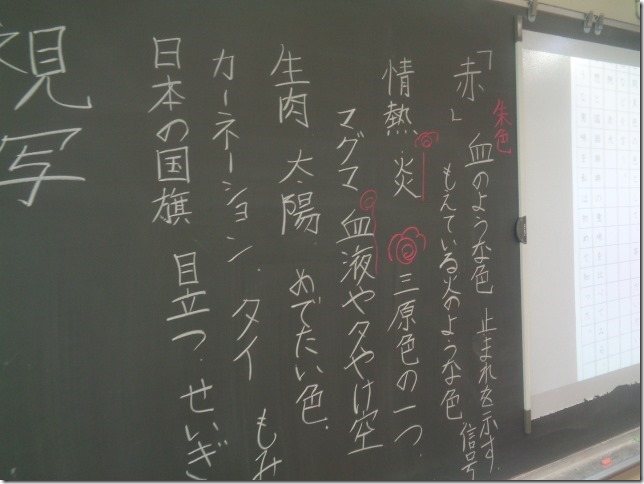 朱色
「赤」 血のような色 止まれを示す. 信号
もえている火のような色
情熱.炎 三原色の一つ.
マグマ 血液や夕やけ空
生肉 太陽. めでたい色.
カーネーション. タイ もみ
日本の国旗 目立つ.せいぎ
視写